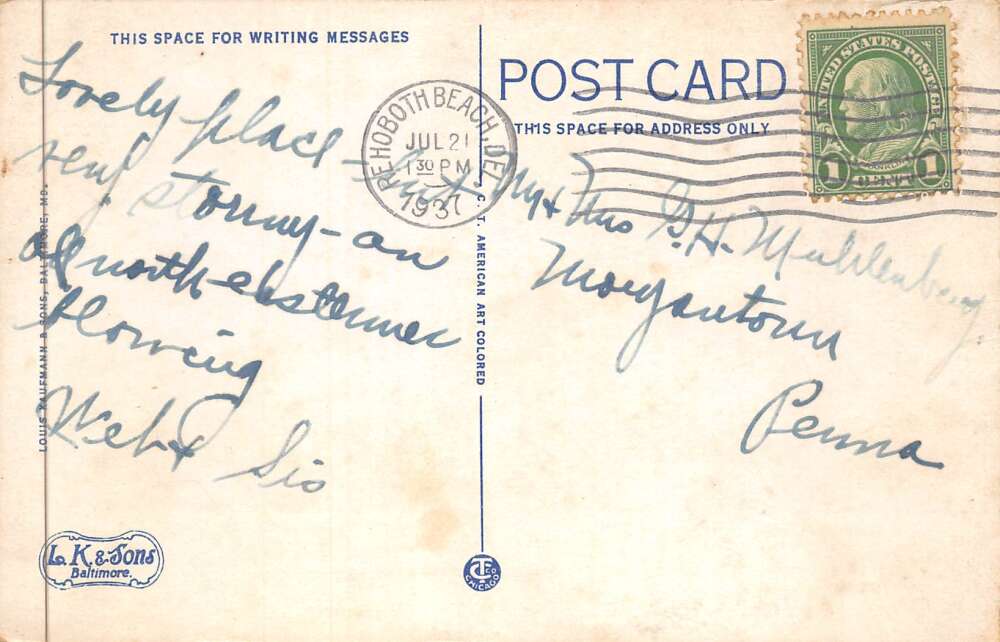 THIS SPACE FOR WRITING MESSAGES
Lovely place - but
very stormy - an
north easterner
blowing
Web & Sis
LOUIS KAUFMANN & SONS, BALTIMORE, MD.
L. K. & Sons
Baltimore.
C. T. AMERICAN ART COLORED
CT CO
CHICAGO
POST CARD
THIS SPACE FOR ADDRESS ONLY
REHOBOTH BEACH, DEL
JUL 21
1 30 PM
1937
UNITED STATES POSTAGE
FRANKLIN
1 CENT 1
Mr & Mrs G. H. Muhlenberg
Morgantown
Penna